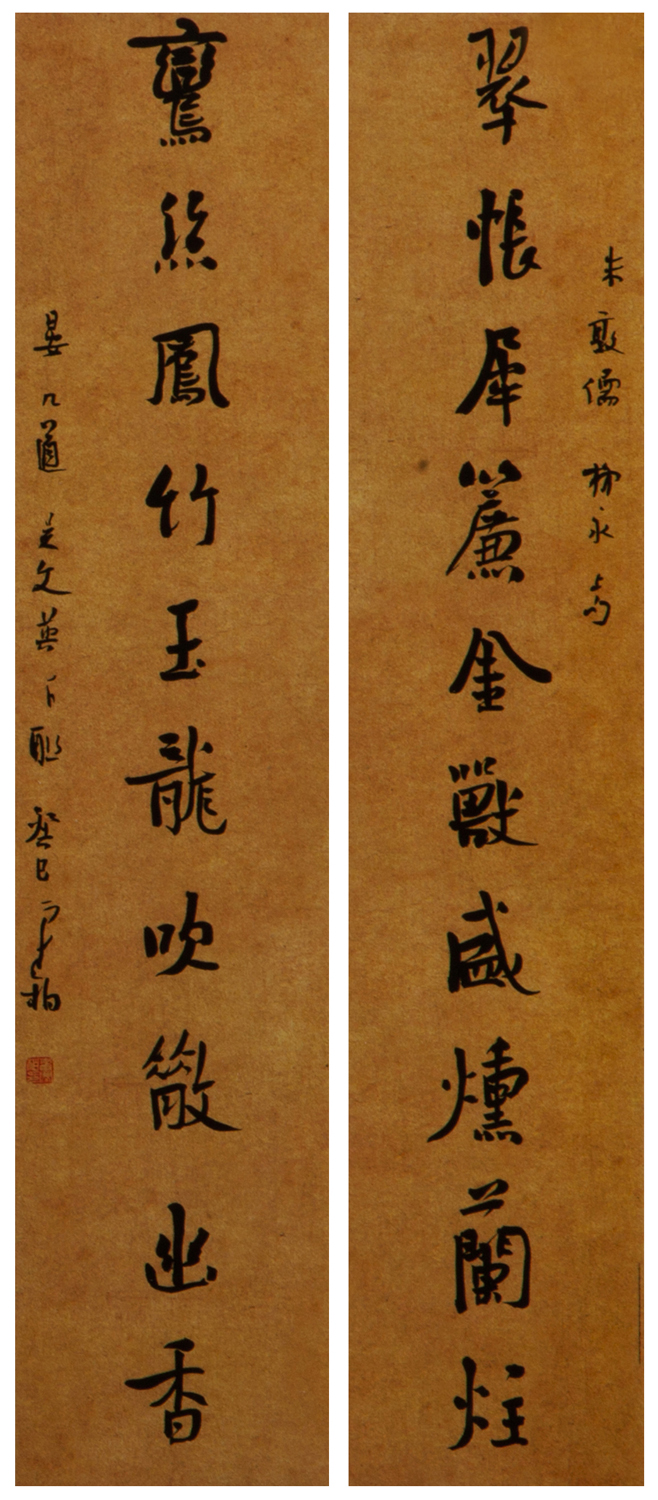 朱敦儒 柳永句
翠帳犀簾金獸盛燻蘭炷
鸞絲鳳竹玉龍吹散幽香
晏几道 吴文英 下聯 癸巳 柏